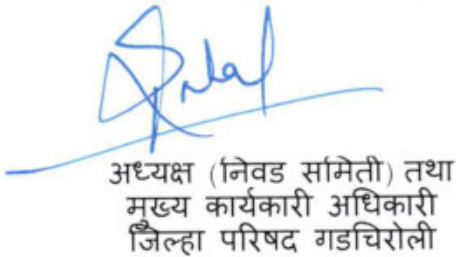 अध्यक्ष (निवड समिती) तथा
मुख्य कार्यकारी अधिकारी
जिल्हा परिषद गडचिरोली